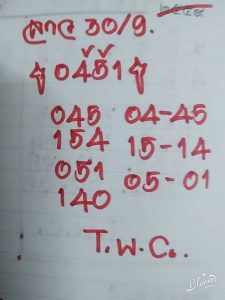 ลาว 30/9.
0451
045 04-45
154 15-14
051 05-01
140
T.W.C..
Bloem